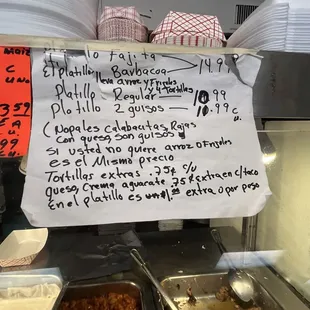 Fajita
El platillo Barbacoa 14.99
lleva arroz y Frijoles
y 4 Tortillas
Platillo Regular 10.99
Plotillo 2 guisos 10.99
(Nopales Calabacitas, Rajas
con queso, son guisos)
si usted no quiere arroz o Frijoles
es el Mismo precio
Tortillas extras .75¢ c/u
queso, crema aguacate .75¢ Extra en c/taco
en el platillo es extra, o por peso
C
UNO
3.59
EA
C.U.
.99
C.U.